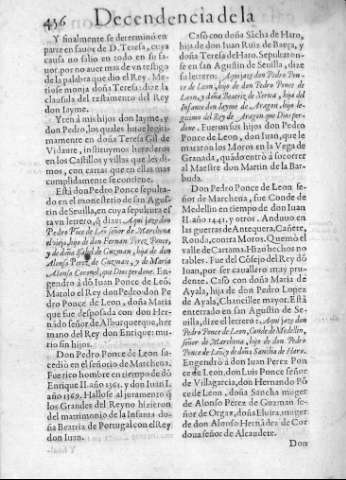 456 Decendencia de la
Y finalmente se determinò en
parte en fauor de D. Teresa, cuya
causa no salio en todo en su fa-
uor por no auer mas de vn testigo
de la palabra que dio el Rey. Me-
tiose monja doña Teresa: dize la
clausula del testamento del Rey
don Iayme.
Y ten à mis hijos don Iayme, y
don Pedro, los quales huue legiti-
mamente en doña Teresa Gil de
Vidaure, instituymos herederos
en los Castillos y villas que les di-
mos, con cartas que en ellas mas
cumplidamente se contiene.
Està don Pedro Ponce sepulta-
do en el monesterio de san Agus-
tin de Seuilla, en cuya sepultura es
ta vn letrero, q̃ dize: Aqui jaze don
Pedro Põce de Leõ señor de Marchena
el viejo, hijo de don Fernan Perez Ponce,
y de doña Isabel de Guzman, hija de don
Alonso Perez de Guzman, y de Maria
Alonso Coronel, que Dios perdone. En-
gendro à dõ Iuan Ponce de Leõ.
Matolo el Rey don Pedro don Pe
dro Ponce de Leon, doña Maria
que fue desposada con don Her-
nãdo señor de Alburquerque, her
mano del Rey don Enrique: mu-
rio sin hijos.
Don Pedro Ponce de Leon su-
cediò en el señorio de Marchena.
Fue rico hombre en tiempo de dõ
Enrique II. año 1361. y don Iuan I.
año 1369. Hallose al juramento q̃
los Grandes del Reyno hizieron
del matrimonio de la Infanta do-
ña Beatriz de Portugal con el Rey
don Iuan.
Casò con doña Sãcha de Haro,
hija de don Iuan Ruiz de Baeça, y
doña Teresa de Haro. Sepultaron-
se en san Agustin de Seuilla, dize
su letrero: Aqui jaze don Pedro Pon-
ce de Leon, hijo de don Pedro Ponce de
Leon, y doña Beatriz de Xerica, hija del
Infante don Iayme de Aragon, hijo le-
gitimo del Rey de Aragon que Dios per-
done. Fueron sus hijos don Pedro
Ponce de Leon, don Iuan, que le
mataron los Moros en la Vega de
Granada, quãdo entrò à socorrer
al Maestre don Martin de la Bar-
buda.
Don Pedro Ponce de Leon se-
ñor de Marchena, fue Conde de
Medellin en tiempo de don Iuan
II. año 1441. y otros. Anduuo en
las guerras de Antequera, Cañete,
Ronda, contra Moros. Quemò el
valle de Cartama. Hizo hechos no
tables. Fue del Cõsejo del Rey dõ
Iuan, por ser cauallero muy pru-
dente. Casò con doña Maria de
Ayala, hija de don Pedro Lopez
de Ayala, Chanciller mayor. Està
enterrado en san Agustin de Se-
uilla, dize el letrero: Aqui jaze don
Pedro Ponce de Leon, Conde de Medellin,
señor de Marchena, hijo de don Pedro
Ponce de Leõ, y de doña Sancha de Haro.
Engendrò à don Iuan Perez Pon
ce de Leon, don Luis Ponce señor
de Villagarcia, don Hernando Põ
ce de Leon, doña Sancha muger
de Alonso Perez de Guzman se-
ñor de Orgaz, doña Eluira, muger
de don Alonso Hernãdez de Cor
doua señor de Alcaudete.
Don